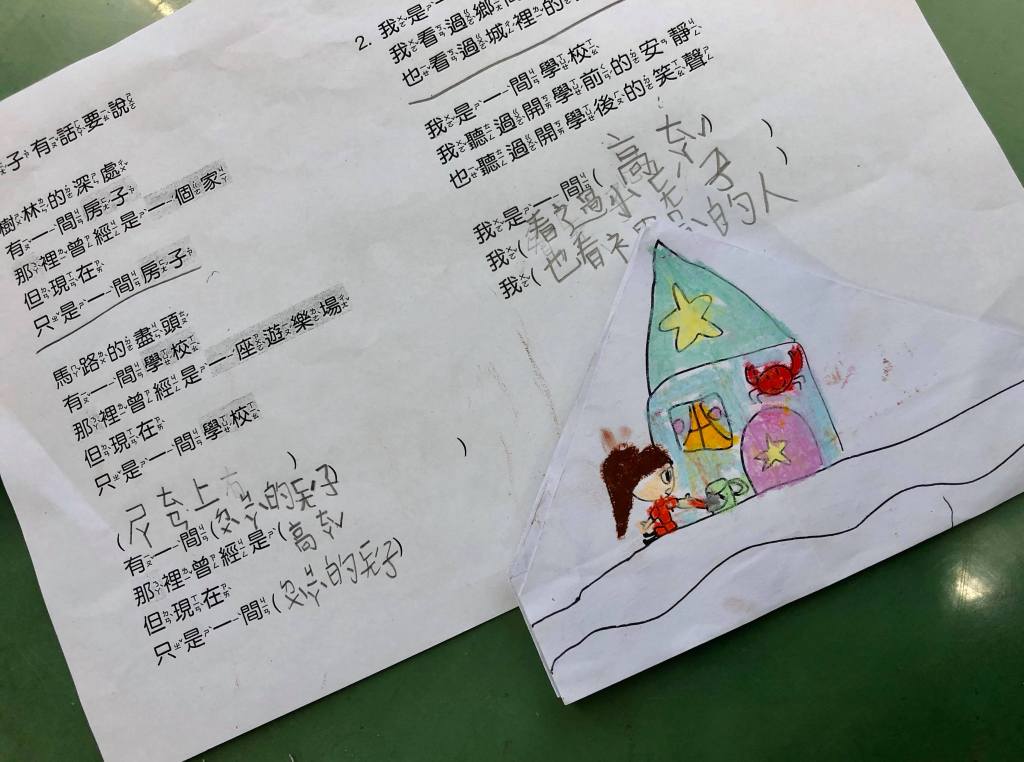 子有話要說
樹林的深處
有一間房子
那裡曾經是一個家
但現在
只是一間房子
馬路的盡頭
有一間學校
那裡曾經是一座遊樂場
但現在
只是一間學校
( 上 )
有一間( 的房子 )
那裡曾經是(高
但現在
只是一間( 的房子)
2. 我是一
我看過鄉
也看過城裡的
我是一間學校
我聽過開學前的安靜
也聽過開學後的笑聲
我是一間(高 )
我(看過小 子 )
我(也看 的人